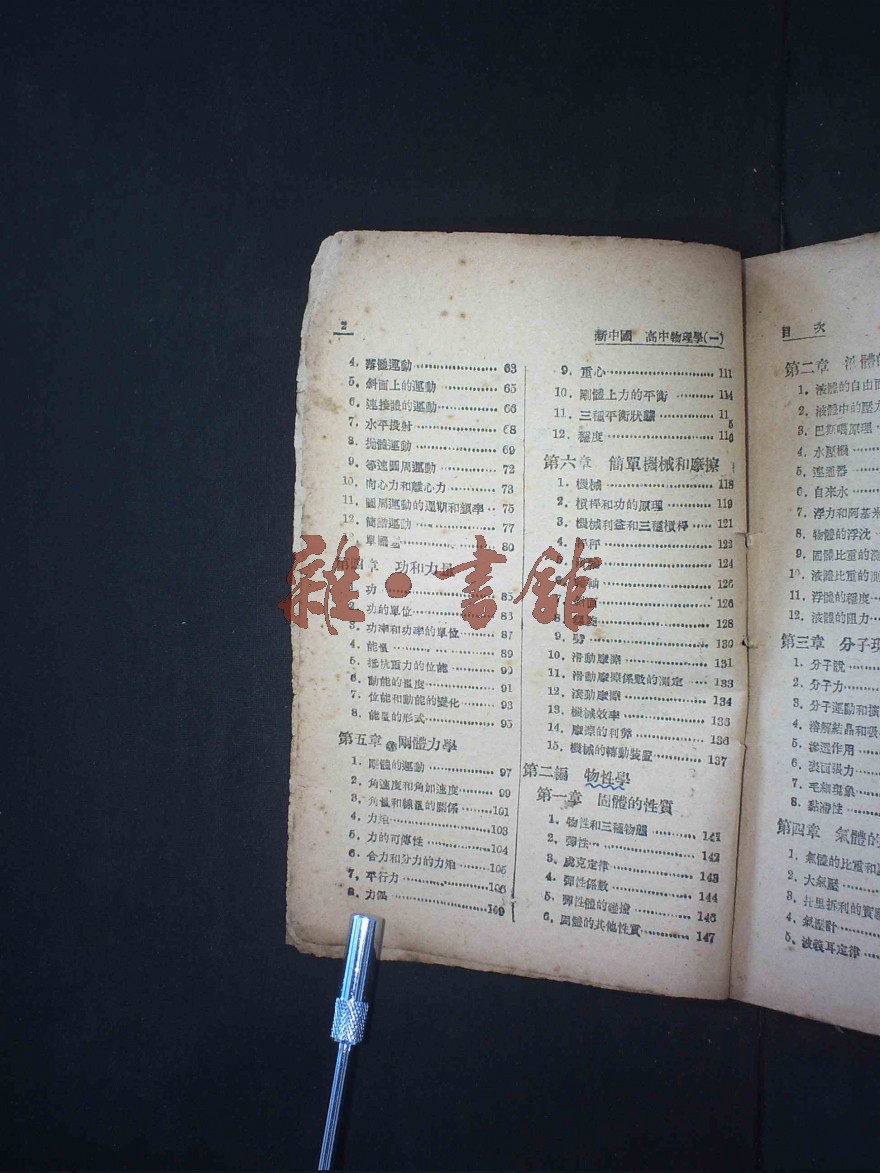 2
新中國 高中物理學(一)
4. 落體運動 63
5. 斜面上的運動 65
6. 連接體的運動 66
7. 水平投射 68
8. 拋體運動 69
9. 等速圓周運動 72
10. 向心力和離心力 73
11. 圓周運動的週期和頻率 75
12. 簡諧運動 77
13. 單擺 80
第四章 功和力量
1. 功 85
2. 功的單位 86
3. 功率和功率的單位 87
4. 能量 89
5. 抵抗重力的位能 90
6. 動能的溫度 91
7. 位能和動能的變化 93
8. 能量的形式 95
第五章 剛體力學
1. 剛體的運動 97
2. 角速度和角加速度 99
3. 角量和線量的關係 101
4. 力矩 103
5. 力的可傳性 104
6. 合力和分力的力矩 105
7. 平行力 106
8. 力偶 109
9. 重心 111
10. 剛體上力的平衡 114
11. 三種平衡狀態 115
12. 穩度 116
第六章 簡單機械和摩擦
1. 機械 118
2. 槓桿和功的原理 119
3. 機械利益和三種槓桿 121
4. 秤 122
5. 124
6. 輪軸 126
7. 斜面 126
8. 螺旋 128
9. 劈 130
10. 滑動摩擦 131
11. 滑動摩擦係數的測定 133
12. 滾動摩擦 134
13. 機械效率 136
14. 摩擦的利弊 136
15. 機械的轉動裝置 137
第二編 物性學
第一章 固體的性質
1. 物性和三種物態 141
2. 彈性 142
3. 虎克定律 143
4. 彈性係數 144
5. 彈性體的碰撞 146
6. 固體的其他性質 147
目次
第二章 液體的
1. 液體的自由面
2. 液體中的壓力
3. 巴斯噶原理
4. 水壓機
5. 連通器
6. 自來水
7. 浮力和阿基米
8. 物體的浮沈
9. 固體比重的測
10. 液體比重的測
11. 浮體的穩度
12. 液體的阻力
第三章 分子現
1. 分子說
2. 分子力
3. 分子運動和擴
4. 溶解結晶和吸
5. 滲透作用
6. 表面張力
7. 毛細現象
8. 黏滯性
第四章 氣體的
1. 氣體的比重和
2. 大氣壓
3. 托里拆利的實驗
4. 氣壓計
5. 波義耳定律
雜·書館